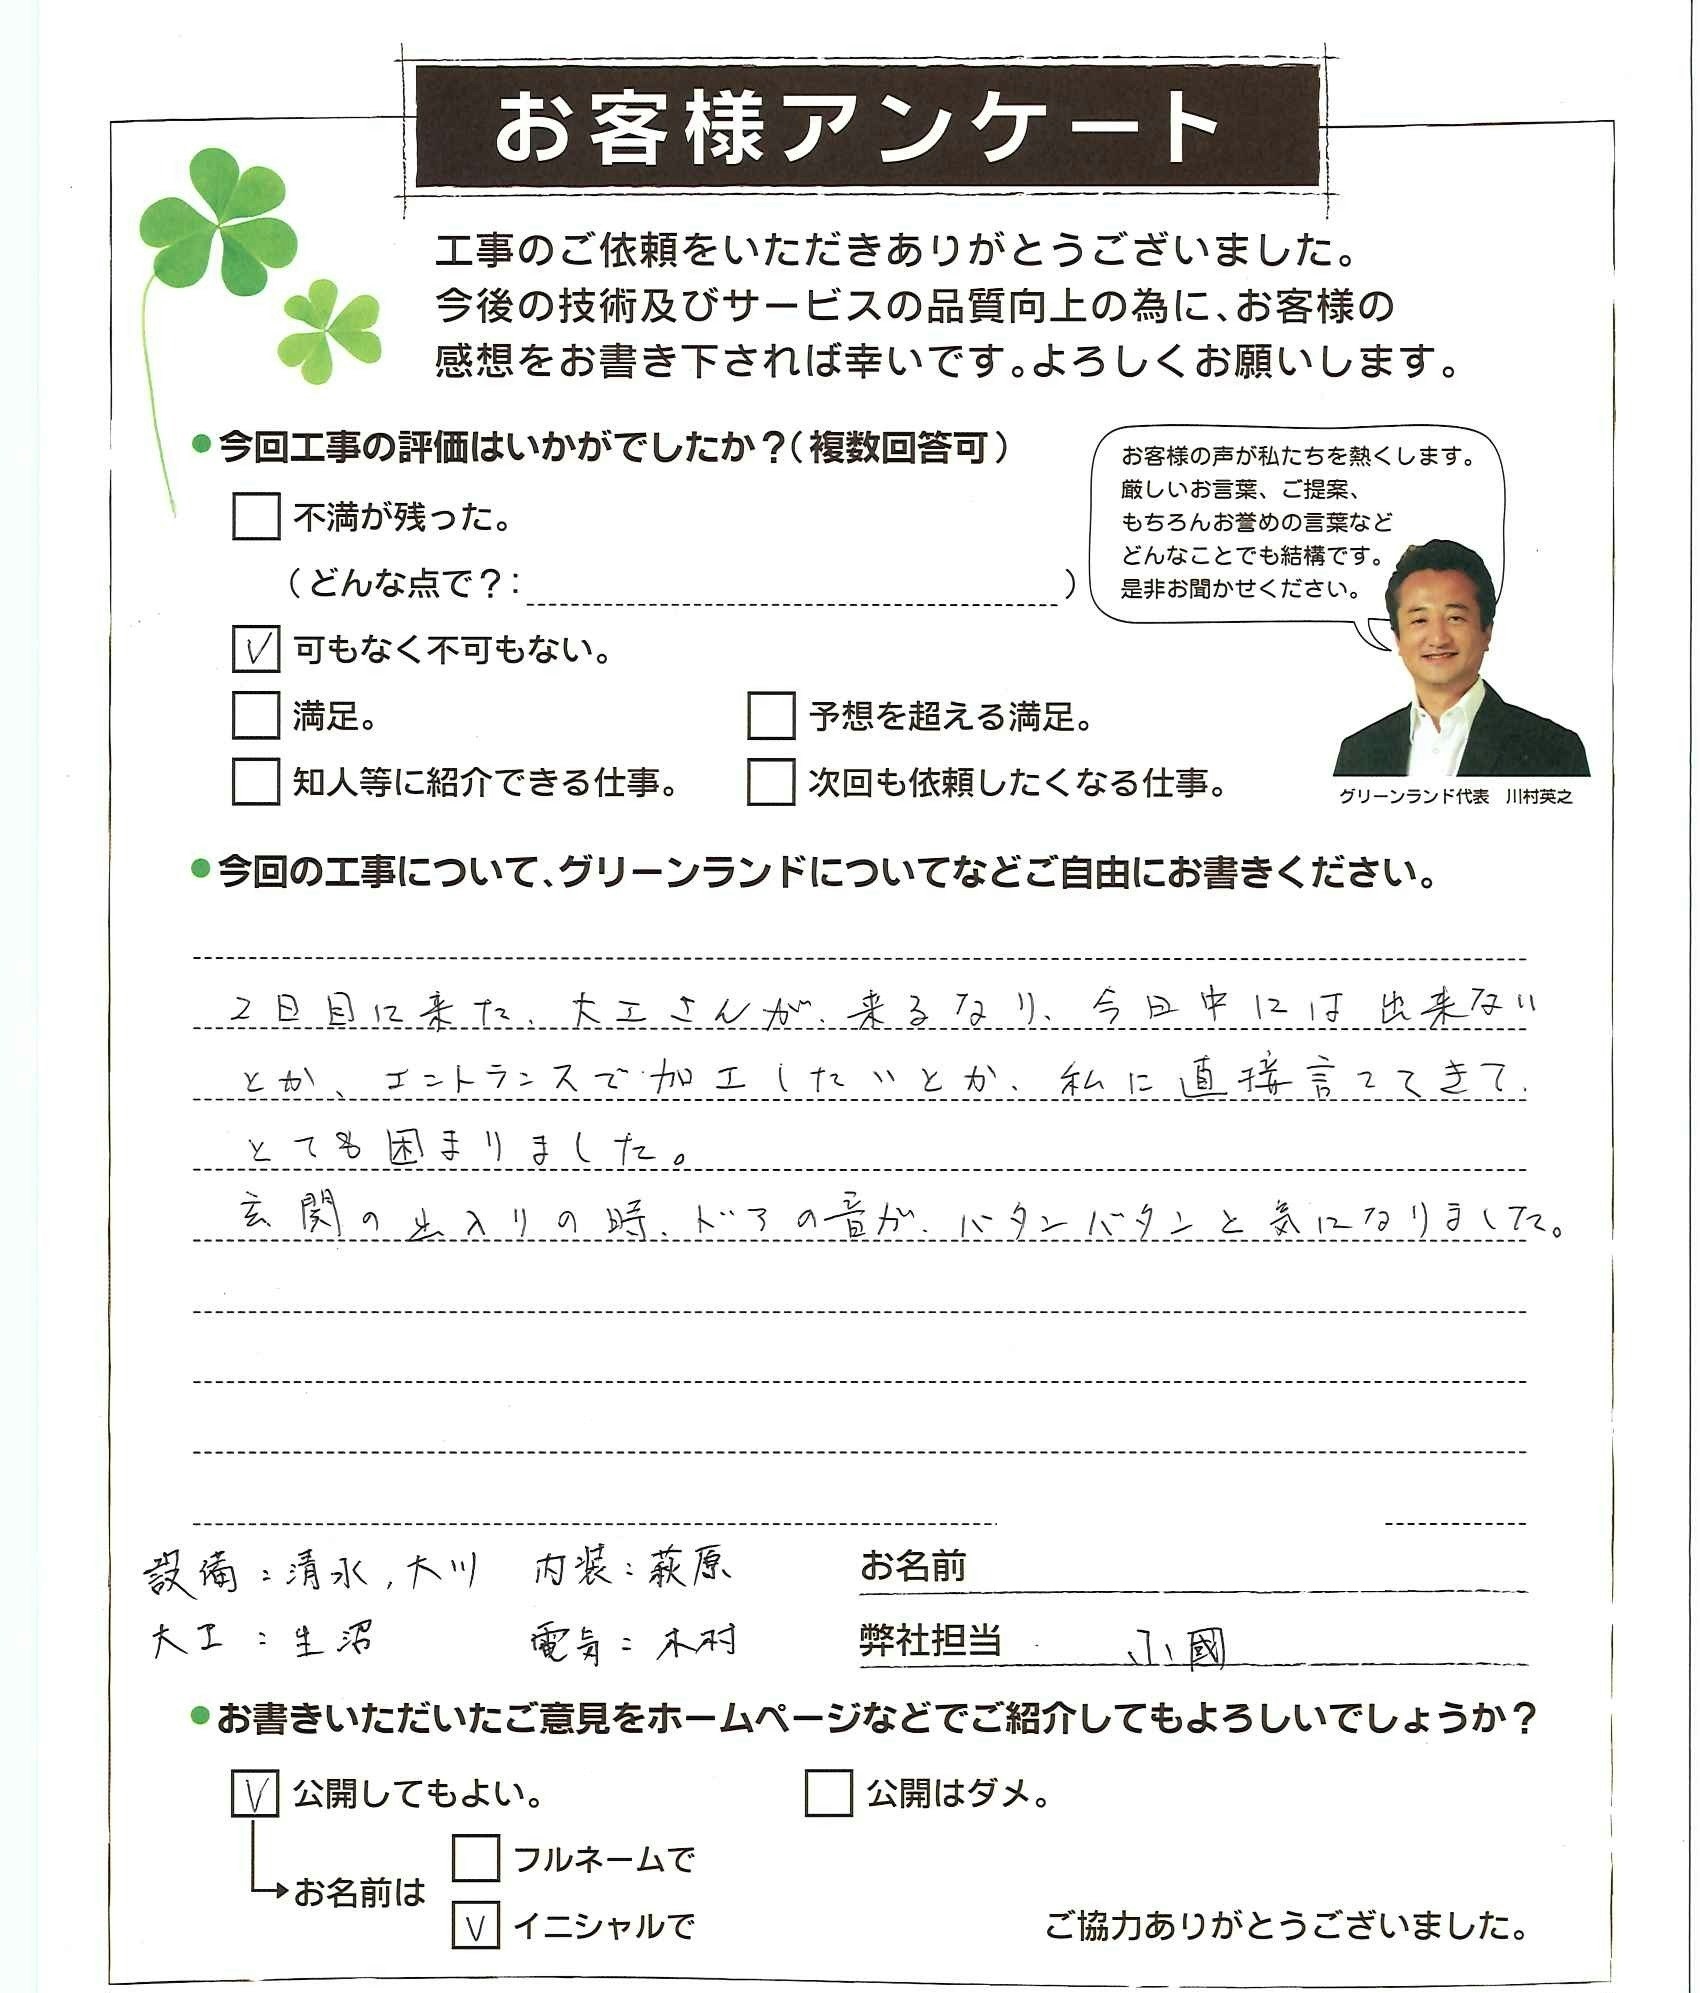 お客様アンケート
工事のご依頼をいただきありがとうございました。
今後の技術及びサービスの品質向上の為に、お客様の
感想をお書き下されば幸いです。よろしくお願いします。
●今回工事の評価はいかがでしたか？（複数回答可）
不満が残った。
（どんな点で？： ）
✓ 可もなく不可もない。
満足。 予想を超える満足。
知人等に紹介できる仕事。 次回も依頼したくなる仕事。
お客様の声が私たちを熱くします。
厳しいお言葉、ご提案、
もちろんお誉めの言葉など
どんなことでも結構です。
是非お聞かせください。
グリーンランド代表 川村英之
●今回の工事について、グリーンランドについてなどご自由にお書きください。
2日目に来た、大工さんが、来るなり、今日中には出来ない
とか、エントランスで加工したいとか、私に直接言ってきて、
とても困まりました。
玄関の出入りの時、ドアの音が、バタンバタンと気になりました。
設備：清水，大川 内装：萩原
大工：生沼 電気：木村
お名前
弊社担当 小國
●お書きいただいたご意見をホームページなどでご紹介してもよろしいでしょうか？
✓ 公開してもよい。 公開はダメ。
お名前は
フルネームで
✓ イニシャルで
ご協力ありがとうございました。